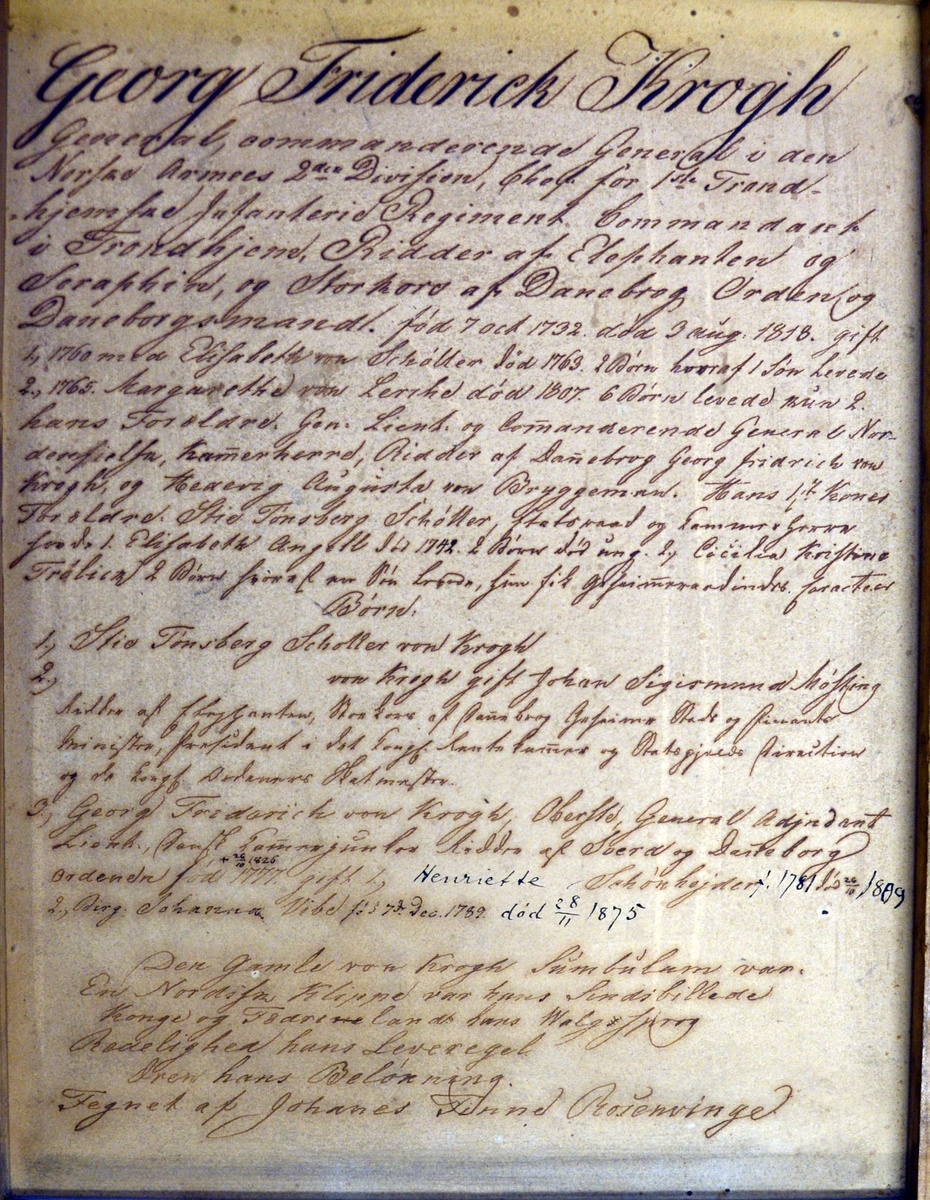 Georg Friderick Krogh
General, commanderende General i den
Norske Armees 2den Division, Chef for 1ste Trond-
hjemske Infanterie Regiment. Commandant
i Trondhjem, Ridder af Elephanten og
Seraphin, og Storkors af Danebrog Orden og
Daneborgsmand. født 7 oct 1732. død 3 aug. 1818. gift
1, 1760 med Elisabeth von Schöller død 1763. 2 Børn hvoraf 1 Søn levede
2., 1765. Margarethe von Lerche død 1807. 6 Børn levede kun 2.
hans Forældre. Gen. Lieut. og Com̄anderende General Nor-
denfielske, Kam̄erherre, Ridder af Dan̄ebrog Georg fridrich von
Krogh, og Hedevig Augusta von Bryggeman. Hans 1.ste Kones
Forældre. Stie Tønsberg Schöller, Etatsraad og Kammerherre
1. Elisabeth Angell død 1742. 2 Børn død ung. 2, Cicilia Kristine
2 Børn hvoraf en Søn levede, hun fik Geheimeraadindes
Børn.
1, Stie Tønsberg Scholler von Krogh
2, von Krogh gift Johan Sigismund Møsting
Ridder af Elephanten, Storkors af Dan̄ebrog Geheime Stats og Finants
Minister, President i det kongl. Rentekam̄er og Statsgjelds Direction
og de kongl. Ordeners Skatmester.
3, Georg Frederich von Krogh, Oberste, General Adjudant
Lieut., Dansk Kam̄erjunker Ridder af Sverd og Daneborg
+ 26/10 1826
ordenen født 1777 gift 1, Henriette Schønheyder f. 1781 død 26/10 1809
2., Berg. Johanna Vibe Dec. 1789. død 28/11 1875
Den Gamle von Krogh Sumbulum var.
En Nordisk Klippe var hans Sindbillede
Konge og Fædreneland hans Walgsprog
Redelighed hans Leveregel
Øren hans Beløning.
Tegnet af Johanes Finne Rosenvinge